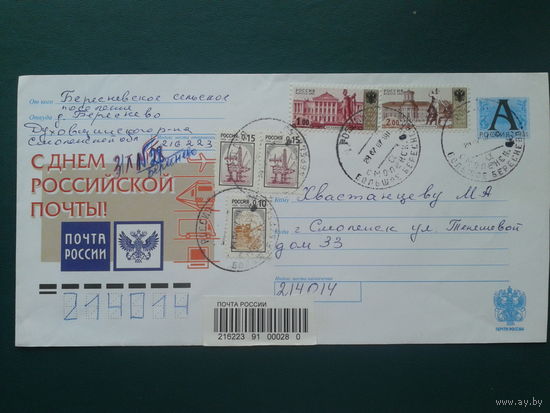 От кого Бересневское сельское
поселение
Откуда д. Береснево
Духовщинского р-на
Смоленской обл
216223
С ДНЕМ
РОССИЙСКОЙ
ПОЧТЫ!
ПОЧТА
РОССИИ
214014
РОССИЯ
1.00
РОССИЯ
2.00
А
РОССИЯ
РОССИЯ 0.15
РОССИЯ 0.15
РОССИЯ 0.10
СМОЛЕНСК
Кому Хвастанцеву М А
Куда г Смоленск ул. Тенешевой
дом 33
214014
ПОЧТА РОССИИ
216223 91 00028 0
ПОЧТА РОССИИ
www.ay.by